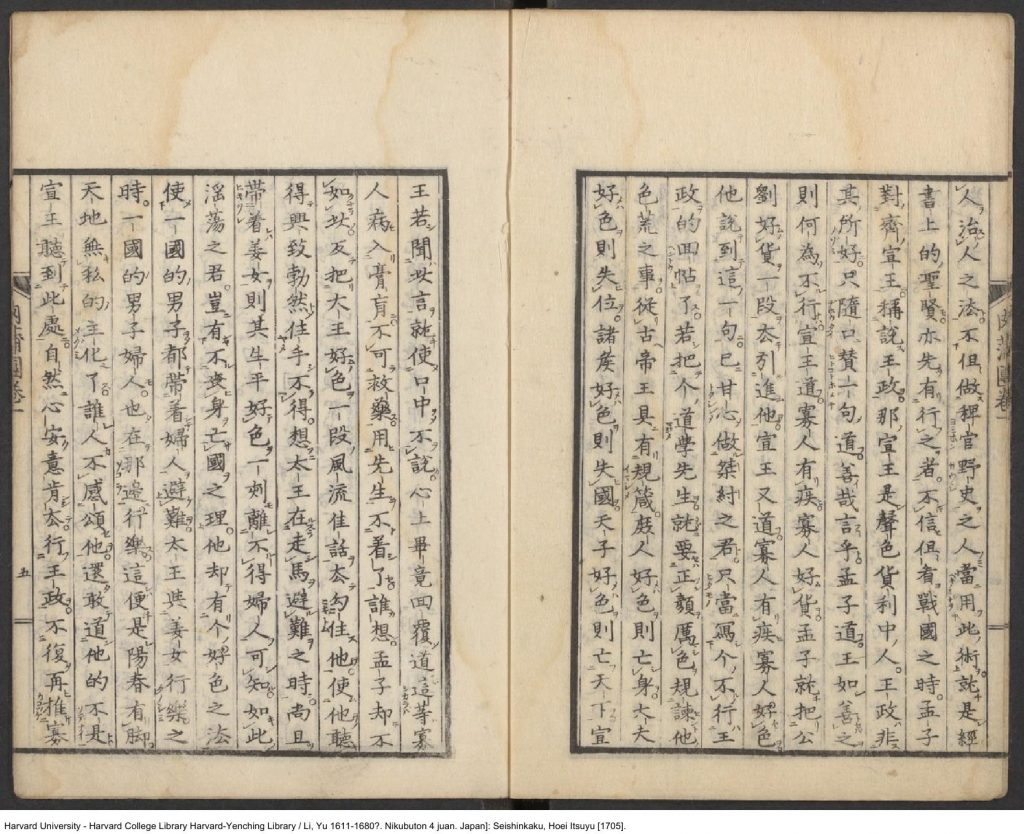 人治人之法不但做稗官野史之人當用此術就是經
書上的聖賢亦先有行之者不信但看戰國之時孟子
對齊宣王稱說王政那宣王是聲色貨利中人王政非
其所好只隨口贊一句道善哉言乎孟子道王如善之
則何為不行宣王道寡人有疾寡人好貨孟子就把公
劉好貨一段去引進他宣王又道寡人有疾寡人好色
他說到這一句已甘心做桀紂之君只當寫个不行王
政的回帖了若把个道學先生就要正顏厲色規諫他
色荒之事從古帝王具有規箴庶人好色則亡身大夫
好色則失位諸侯好色則失國天子好色則亡天下宣
王若聞此言就使口中不說心上畢竟回覆道這等寡
人病入膏肓不可救藥用先生不着了誰想孟子却不
如此反把大王好色一段風流佳話去勾住他使他聽
得興致勃然住手不得想太王在走馬避難之時尚且
帶着姜女則其生平好色一刻離不得婦人可知如此
淫蕩之君豈有不喪身亡國之理他却有个好色之法
使一國的男子都帶着婦人避難太王與姜女行樂之
時一國的男子婦人也在那邊行樂這便是陽春有脚
天地無私的主化了誰人不感頌他還敢道他的不是
宣王聽到此處自然心安意肯去行王政不復再推寡
肉蒲團卷一
五
Harvard University - Harvard College Library Harvard-Yenching Library / Li, Yu 1611-1680?. Nikubuton 4 juan. Japan]: Seishinkaku, Hoei Itsuyu [1705].